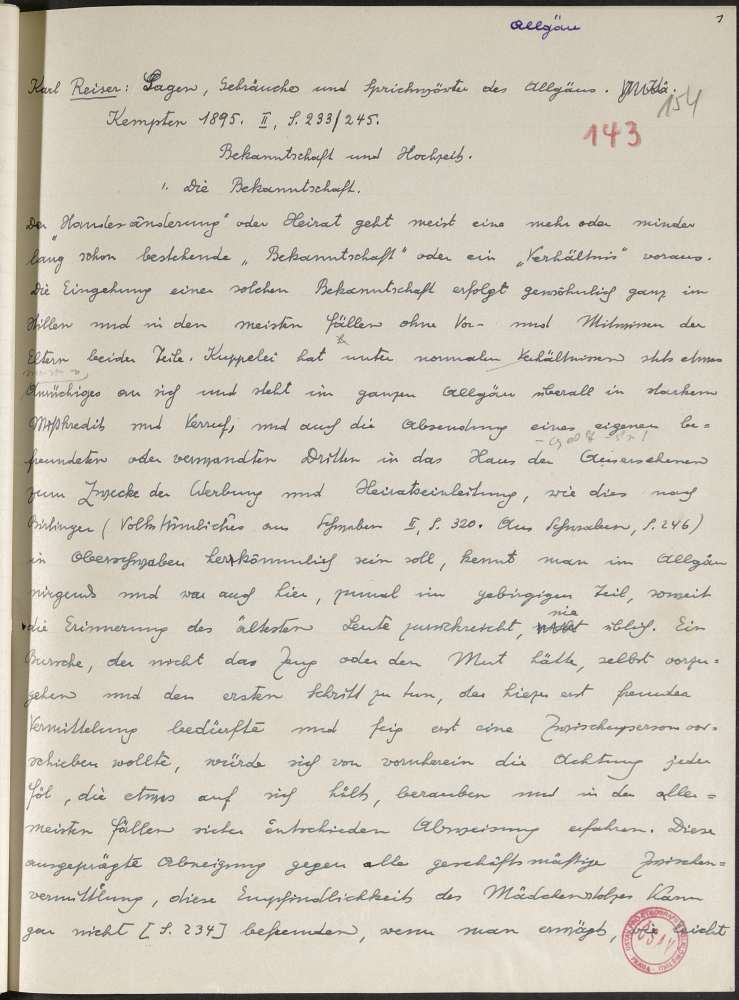 Allgäu
1
Karl Reiser: Sagen, Gebräuche und Sprichwörter des Allgäus.
154
Kempten 1895. II, S. 233/245.
143
Bekanntschaft und Hochzeit.
1. Die Bekanntschaft.
Der "Handesänderung" oder Heirat geht meist eine mehr oder minder
lang schon bestehende "Bekanntschaft" oder ein "Verhältnis" voraus.
Die Eingehung einer solchen Bekanntschaft erfolgt gewöhnlich ganz im
Stillen und in den meisten Fällen ohne Vor- und Mitwissen der
Eltern beider Teile. Kuppelei hat unter normalen Verhältnissen stets etwas
Anrüchiges an sich und steht im ganzen Allgäu überall in starkem
Mißkredit und Verruf, und auch die Absendung eines eigenen be=
freundeten oder verwandten Dritten in das Haus der Auserschenen
zum Zwecke der Werbung und Heiratseinleitung, wie dies nach
Birlinger (Volkstümliches aus Schwaben II, S. 320. Aus Schwaben, S. 246)
in Oberschwaben herkömmlich sein soll, kennt man im Allgäu
nirgends und war auch hier, zumal im gebirgigen Teil, soweit
die Erinnerung des ältesten Leute zurückreicht, nie üblich. Ein
Bursche, der nicht das Zeug oder den Mut hätte, selbst vorzu=
gehen und den ersten Schritt zu tun, der hiezu erst fremder
Vermittelung bedürfte und feig erst eine Zwischenperson vor=
schieben wollte, würde sich von vornherein die Achtung jeder
Föl, die etwas auf sich hält, berauben und in den aller=
meisten Fällen sicher entschieden Abweisung erfahren. Diese
ausgeprägte Abneigung gegen alle geschäftsmäßige Zwischen=
vermittlung, diese Empfindlichkeit des Mädchenstolzes kann
gar nicht [S. 234] befremden, wenn man erwägt, wie leicht